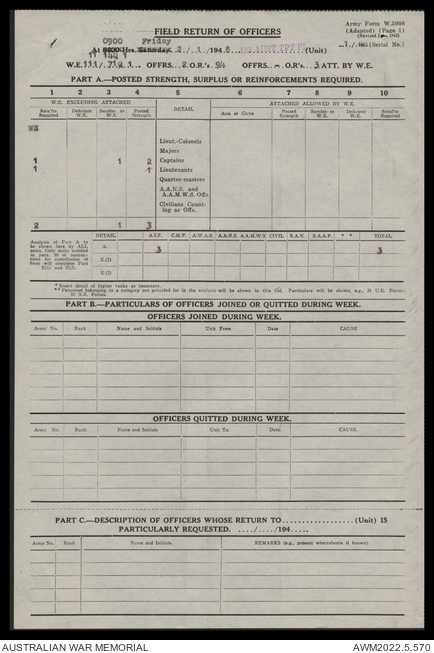 Army Form W.3008
(Adapted) (Page 1)
(Revised Jan., 1943)
FIELD RETURN OF OFFICERS
0900 Friday
At 0600 Hrs. Saturday 2/1/1948 (Unit)
(Serial No.)
OFFRS. 2 O.R.'s. 94 OFFRS. - O.R's. 3 ATT. BY W.E.
PART A.—POSTED STRENGTH, SURPLUS OR REINFORCEMENTS REQUIRED.
1 2 3 4 5 6 7 8 9 10
W.E. EXCLUDING ATTACHED DETAIL ATTACHED ALLOWED BY W.E.
Rein'fts Required Deficient W.E. Surplus to W.E. Posted Strength Arm or Corps Posted Strength Deficient W.E. Surplus to W.E. Rein'fts Required
WE
Lieut.-Colonels
Majors
1 1 2 Captains
1 1 Lieutenants
Quarter-masters
A.A.N.S. and A.A.M.W.S. Offs.
Civilians Counting as Offs.
2 1 3
Analysis of Part A to be shown here by ALL units. Only units notified in para. of instructions for compilation of form will complete Part E(1) and E(2).
DETAIL A.I.F. C.M.F. A.W.A.S. A.A.N.S. A.A.M.W.S. CIVIL R.A.N. R.A.A.F. * * TOTAL
A. 3 3
E.(1)
E.(2)
* Insert detail of higher ranks as necessary.
** Personnel belonging to a category not provided for in the analysis will be shown in this Col. Particulars will be shown, e.g., 20 U.K. Forces; 10 N.Z. Forces.
PART B.—PARTICULARS OF OFFICERS JOINED OR QUITTED DURING WEEK.
OFFICERS JOINED DURING WEEK.
Army No. Rank Name and Initials Unit From Date CAUSE
OFFICERS QUITTED DURING WEEK.
Army No. Rank Name and Initials Unit To. Date CAUSE.
PART C.—DESCRIPTION OF OFFICERS WHOSE RETURN TO.................(Unit) IS
PARTICULARLY REQUESTED. ..../..../194.....
Army No. Rank Name and Initials. REMARKS (e.g., present whereabouts if known).
AUSTRALIAN WAR MEMORIAL AWM2022.5.570